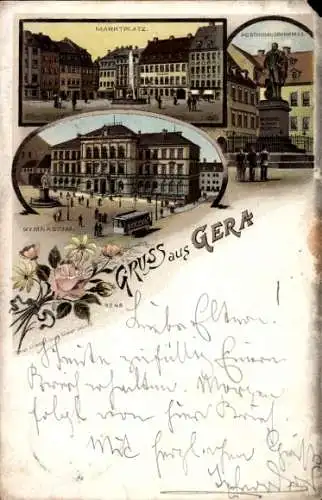 MARKTPLATZ.
POSTHUMUSDENKMAL
GYMNASIUM.
GRUSS aus GERA
Liebe Eltern.
Heute zufällig Euren
Brief erhalten. Morgen
folgt von hier Brief.
Mit herzlichem Gruß